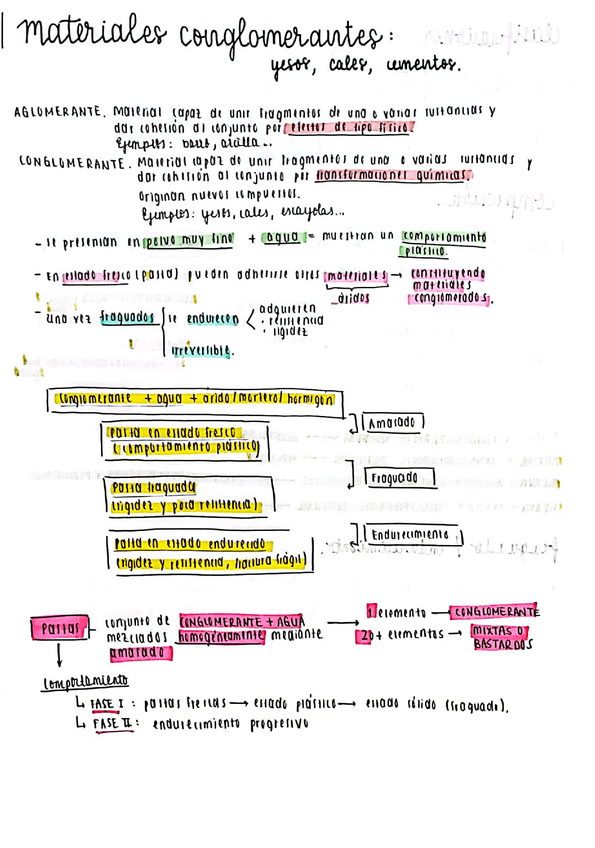 Materiales conglomerantes:
yesos, cales, cementos.
AGLOMERANTE. Material capaz de unir fragmentos de una o varias sustancias y
dar cohesión al conjunto por efectos de tipo físico.
Ejemplos: barro, arcilla...
CONGLOMERANTE. Material capaz de unir fragmentos de una o varias sustancias y
dar cohesión al conjunto por transformaciones químicas.
Originan nuevos compuestos.
Ejemplos: yesos, cales, escayolas...
- se presentan en polvo muy fino + agua = muestran un comportamiento
plástico.
- En estado fresco (pasta) pueden adherirse otros materiales → constituyendo
materiales
áridos conglomerados.
- una vez fraguados se endurecen < adquieren
· resistencia
· rigidez
irreversible.
conglomerante + agua + árido/mortero/hormigón
Amasado
Pasta en estado fresco
(comportamiento plástico)
Fraguado
Pasta fraguada
(rigidez y poca resistencia)
Endurecimiento
Pasta en estado endurecido
(rigidez y resistencia, fractura frágil)
Pastas - conjunto de CONGLOMERANTE + AGUA → 1 elemento → CONGLOMERANTE
mezclados homogéneamente mediante 2o+ elementos → MIXTAS O
amasado BASTARDOS
Comportamiento
↳ FASE I : pastas frescas → estado plástico → estado sólido (fraguado).
↳ FASE II : endurecimiento progresivo